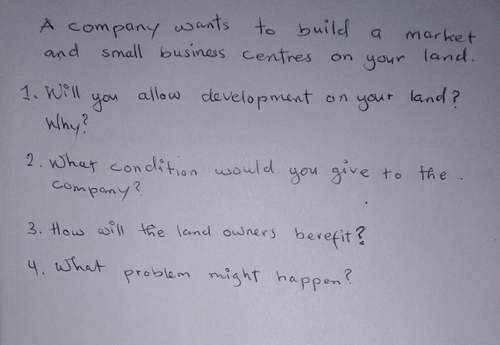 A company wants to build a market
and small business centres on your land.
1. Will you allow development on your land?
Why?
2. What condition would you give to the.
company?
3. How will the land owners berefit?
4. What problem might happen?